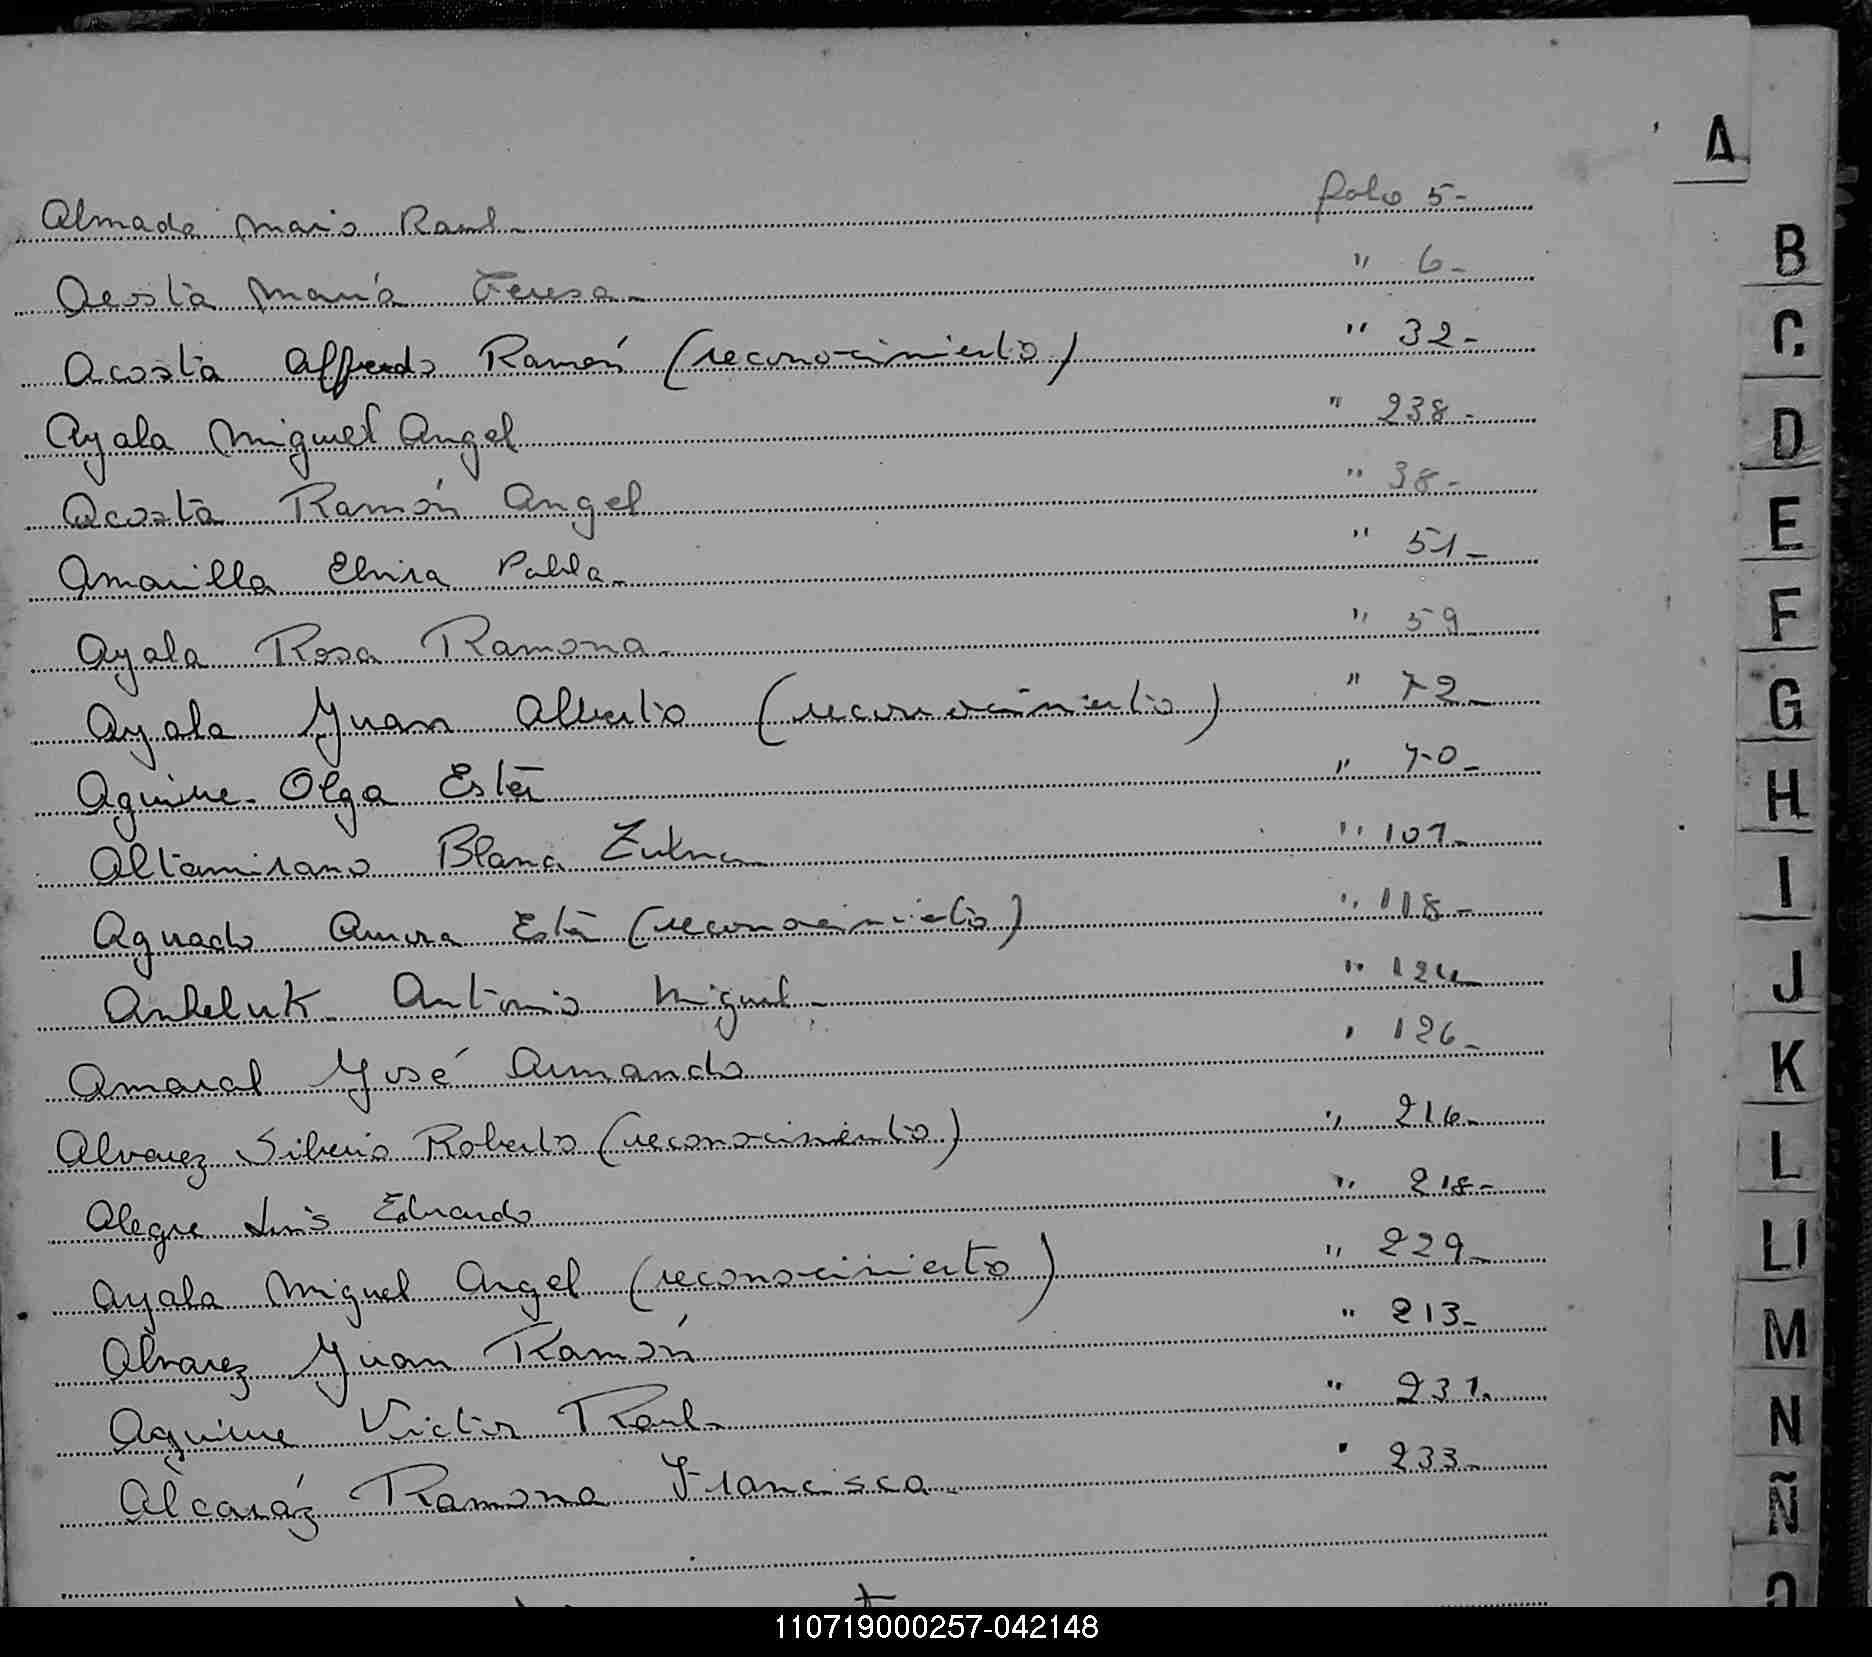 A
Almada Mario Raul folio 5-
Acosta María Teresa " 6-
Acosta Alfredo Ramón (reconocimiento) " 32-
Ayala Miguel Angel " 238-
Acosta Ramón Angel " 38-
Amarilla Elvira Pabla " 51-
Ayala Rosa Ramona " 59
Ayala Juan Alberto (reconocimiento) " 72-
Aguirre Olga Estér " 70-
Altamirano Blanca " 107-
Aguado Estér (reconocimiento) " 118-
Anheluk Antonio Miguel " 124
Amaral José Armando " 126-
Alvarez Silverio Roberto (reconocimiento) " 216-
Alegre Luis Eduardo " 218-
Ayala Miguel Angel (reconocimiento) " 229-
Alvarez Juan Ramón " 213-
Aguirre Victor Raul " 231-
Alcaráz Ramona Francisca " 233-
B
C
D
E
F
G
H
I
J
K
L
Ll
M
N
Ñ
110719000257-042148